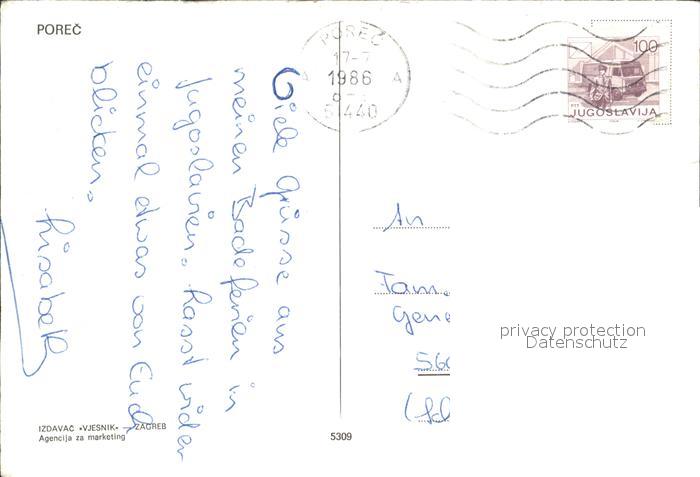 POREČ
POREČ
17-7
1986
A A
51440
100
JUGOSLAVIJA
Viele Grüsse aus
meinen Badeferien in
Jugoslavien. Lasst wider
einmal etwas von Euch
blicken.
Lisabeth
An
Fam.
privacy protection
Datenschutz
IZDAVAČ «VJESNIK» - ZAGREB
Agencija za marketing
5309